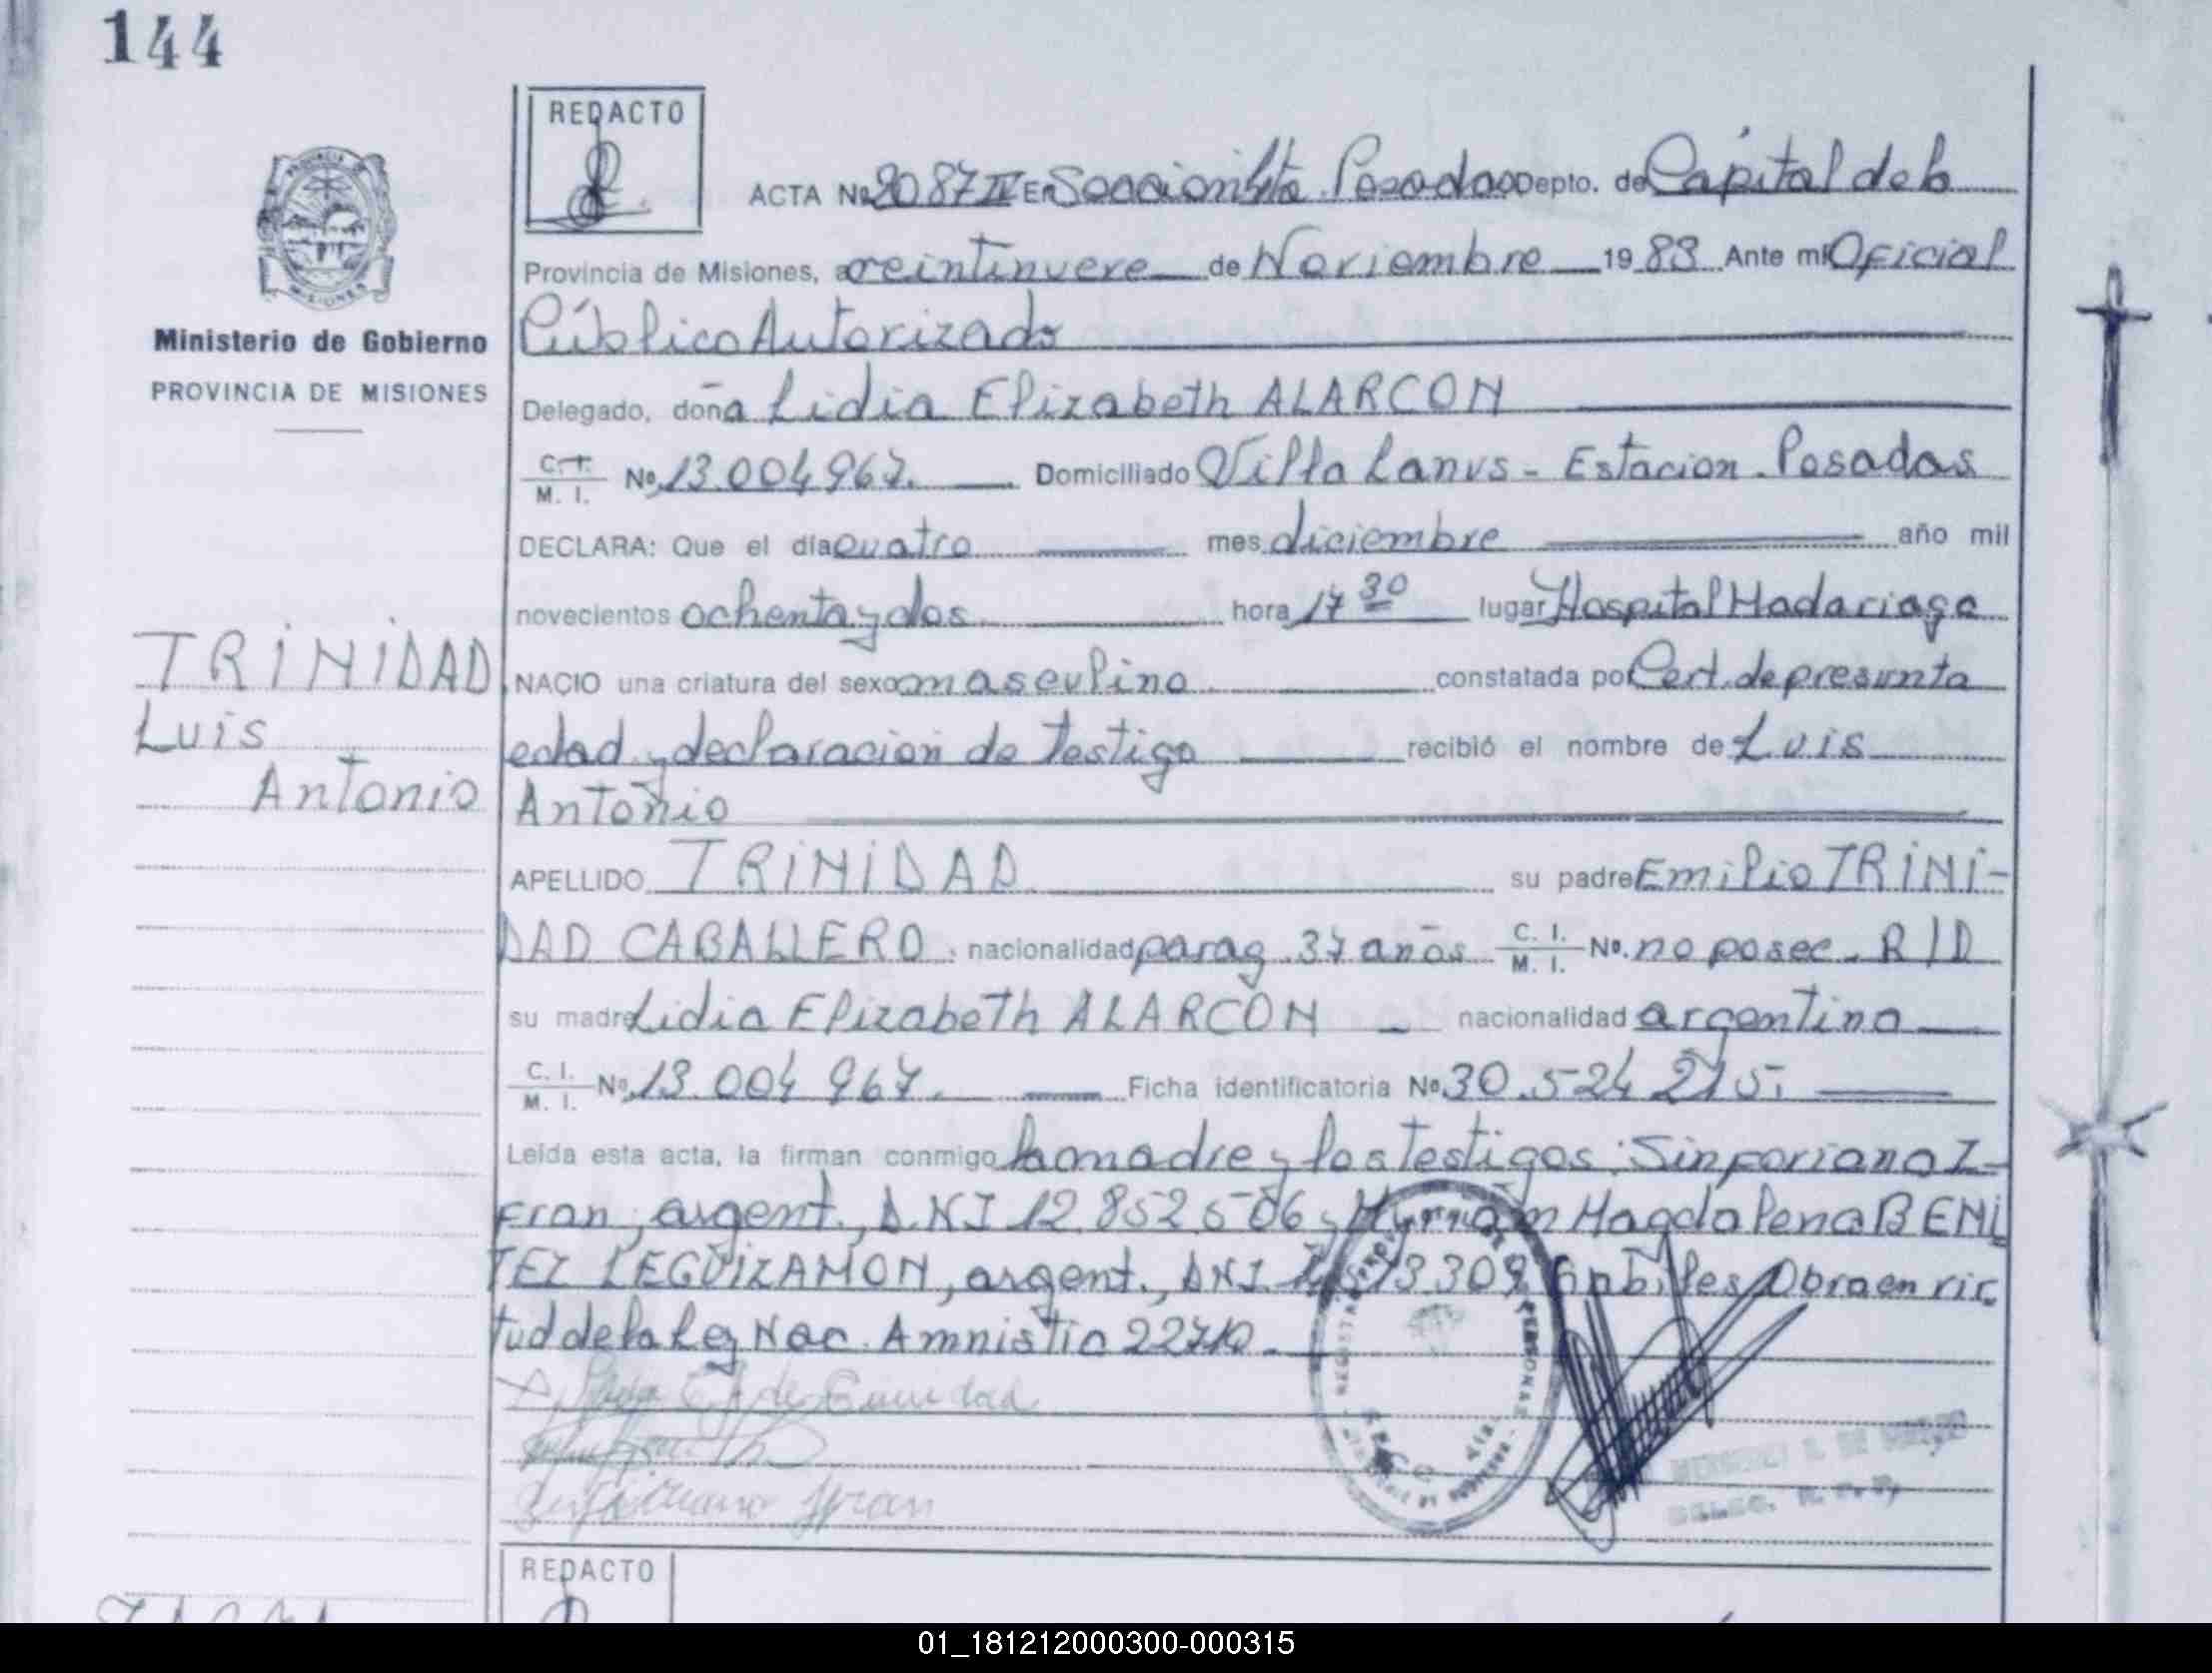 144
REDACTO
ACTA Nº 2087 IV En Seccion 6ta Posadas Depto. de Capital de la
Provincia de Misiones, a veintinueve de Noviembre 1983 Ante mi Oficial
Público Autorizado
Ministerio de Gobierno
PROVINCIA DE MISIONES
Delegado, doña Lidia Elizabeth ALARCON
C. I. M. I. Nº 13.004967. Domiciliado Villa Lanus - Estacion - Posadas
DECLARA: Que el día cuatro mes diciembre año mil
novecientos ochenta y dos hora 17 30 lugar Hospital Madariaga
TRINIDAD
Luis
Antonio
NACIO una criatura del sexo masculino constatada por Cert. de presunta
edad y declaracion de testigo recibió el nombre de Luis
Antonio
APELLIDO TRINIDAD su padre Emilio TRINI-
DAD CABALLERO. nacionalidad parag. 37 años C. I. M. I. Nº. no posee. R/D
su madre Lidia Elizabeth ALARCON nacionalidad argentina
C. I. M. I. Nº 13.004 967. Ficha identificatoria Nº 30.524 215.
Leída esta acta, la firman conmigo la madre y los testigos: Sinforiano I-
fran, argent., D.N.I 12.852.506 y Myrian Magdalena BENI
TEZ LEGUIZAMON, argent., DNI 309 habiles Obra en vir
tud de la Ley Nac. Amnistia 22710.
REDACTO
01_181212000300-000315